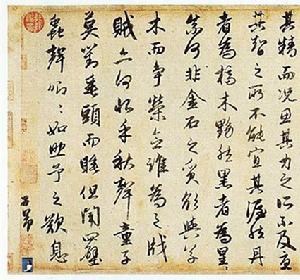 其精而況思其力之所不及憂
其智之所不能宜其渥然丹
者為槁木黟然黑者為星
奈何非金石之質欲與草
木而爭榮念誰為之戕
賊亦何恨乎秋聲童子
莫對垂頭而睡但聞四壁
蟲聲唧〻如助予之歎息
子昂